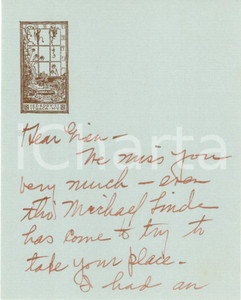 Dear
We miss you
very much - even
tho Michael Linda
has come to try to
take your place -
I had an
iCharta